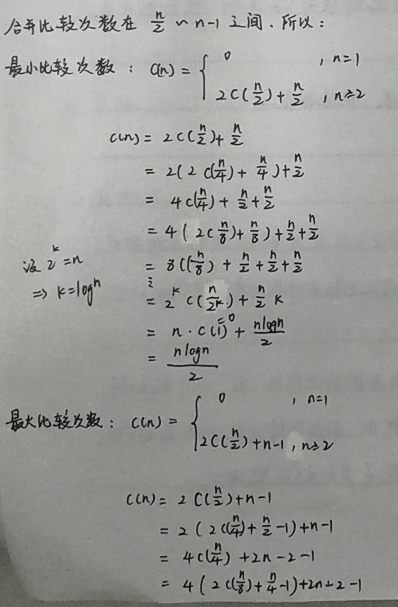 合并比较次数在 n/2 ~ n-1 之间. 所以:
最小比较次数: C(n) = { 0 , n=1
2C(n/2) + n/2 , n≥2
C(n) = 2C(n/2) + n/2
= 2(2C(n/4) + n/4) + n/2
= 4C(n/4) + n/2 + n/2
= 4(2C(n/8) + n/8) + n/2 + n/2
设 2^k = n
= 8C(n/8) + n/2 + n/2 + n/2
⋮
⇒ k = log n
= 2^k C(n/2^k) + n/2 k
= n · C(1) + nlogn/2
=0
= nlogn/2
最大比较次数: C(n) = { 0 , n=1
2C(n/2) + n-1 , n≥2
C(n) = 2C(n/2) + n-1
= 2(2C(n/4) + n/2 - 1) + n-1
= 4C(n/4) + 2n - 2 - 1
= 4(2C(n/8) + n/4 - 1) + 2n - 2 - 1